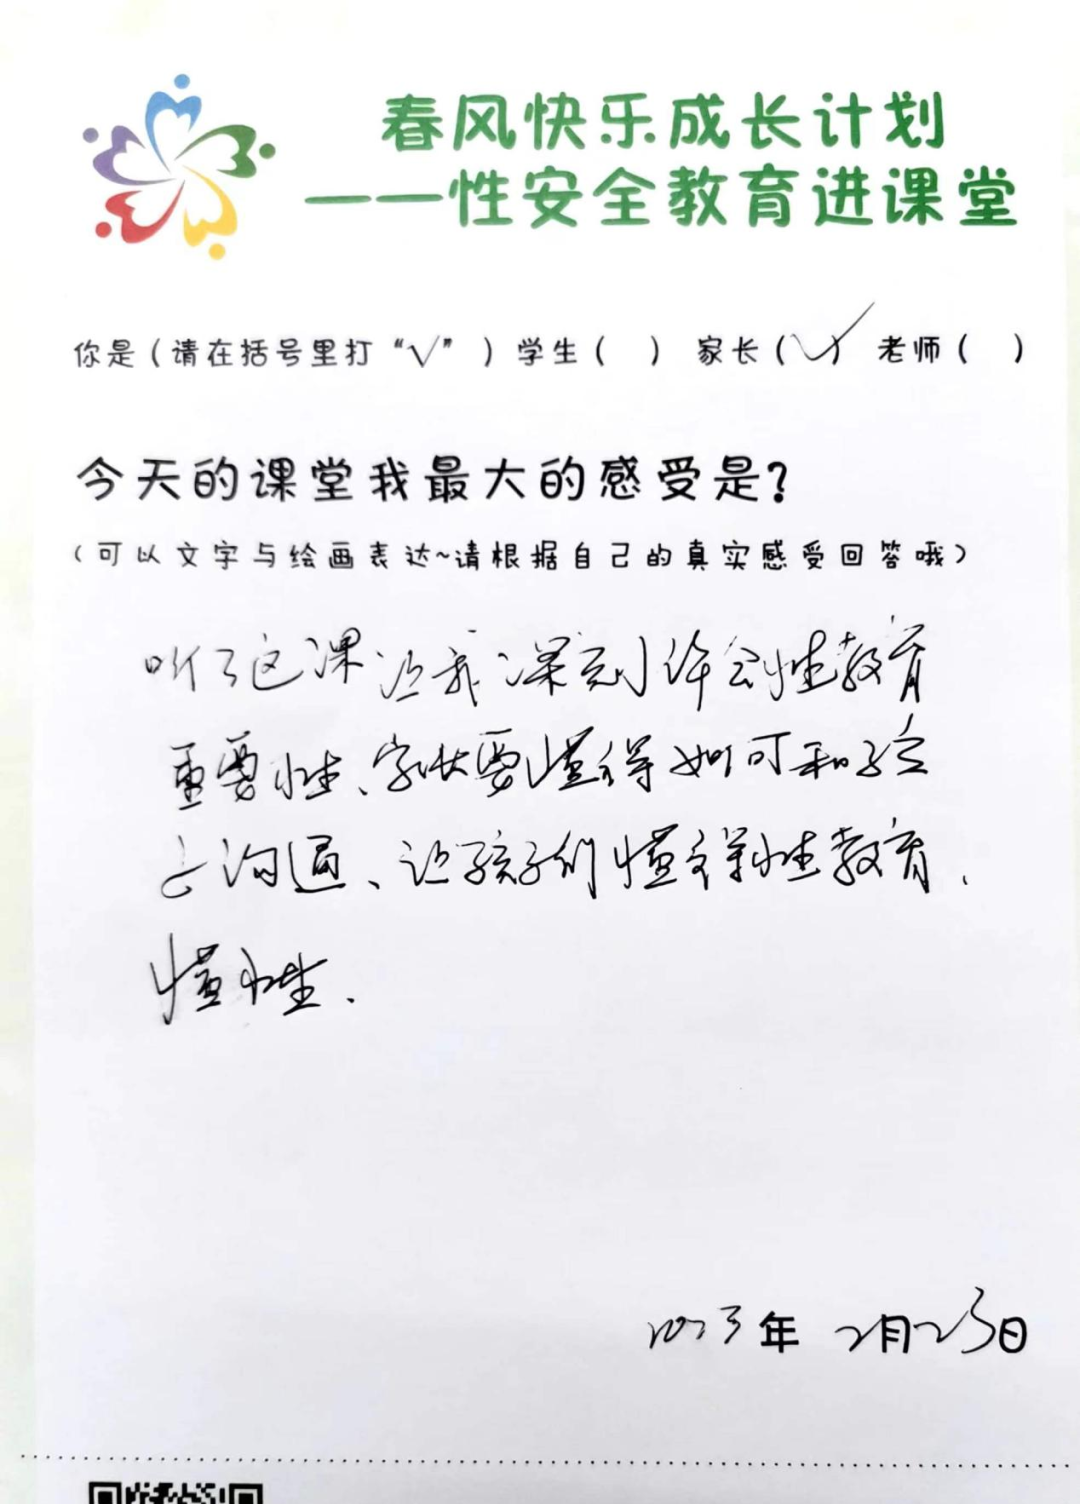 春风快乐成长计划
——性安全教育进课堂
你是(请在括号里打“√”)学生( ) 家长(√) 老师( )
今天的课堂我最大的感受是?
(可以文字与绘画表达~请根据自己的真实感受回答哦)
听了这课让我深刻体会性教育
重要性、家长要懂得如何和孩
子沟通、让孩子们懂得性教育.
懂性.
2023年 2月23日